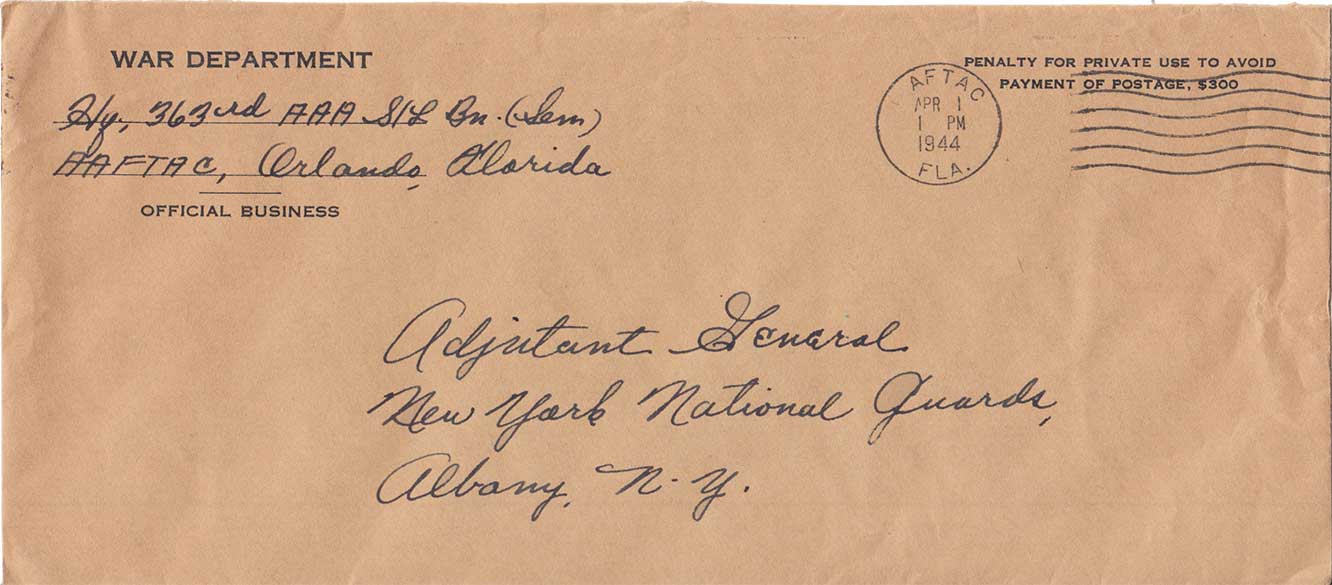 WAR DEPARTMENT
Hq, 363rd AAA S/L Bn. (Sem)
AAFTAC, Orlando, Florida
OFFICIAL BUSINESS
PENALTY FOR PRIVATE USE TO AVOID
PAYMENT OF POSTAGE, $300
AFTAC
APR 1
1 PM
1944
FLA.
Adjutant General
New York National Guards,
Albany, N. Y.